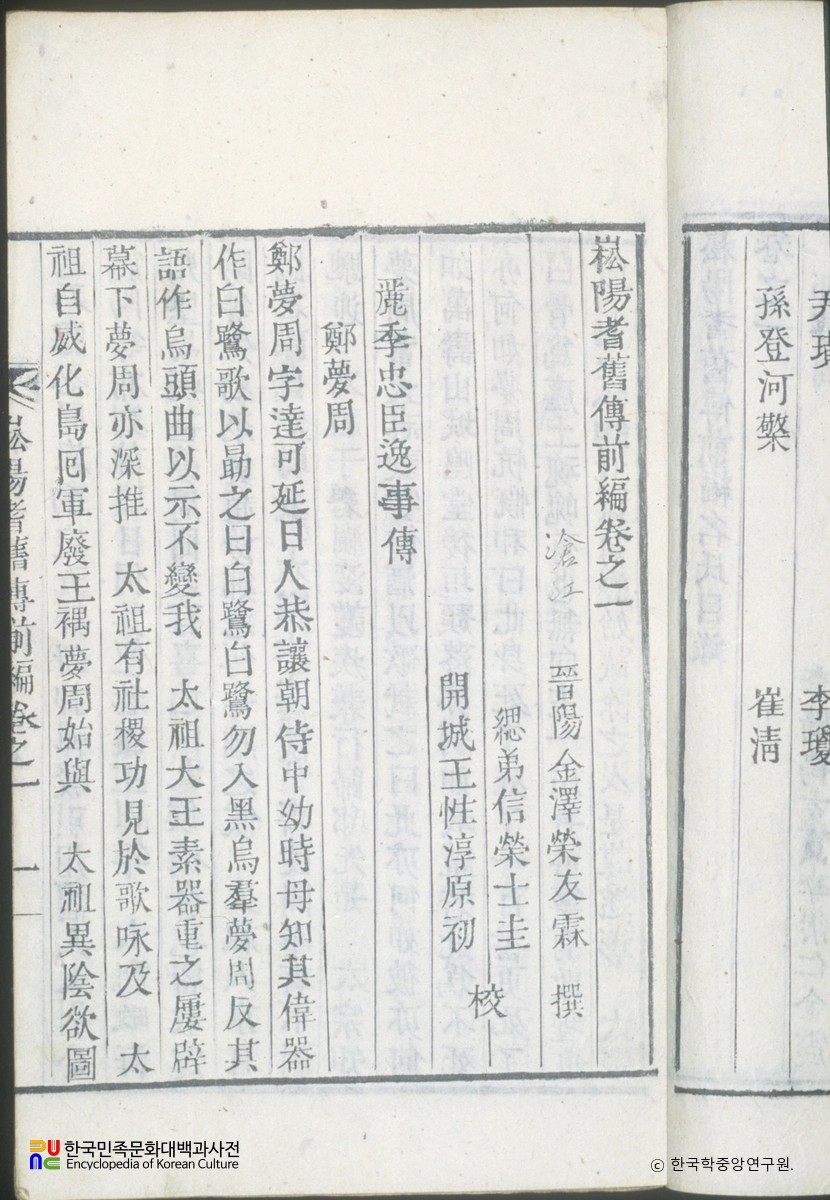 尹瑱
李瓊
孫登 河檠
崔淸
崧陽耆舊傳前編卷之一
滄江 晉陽 金澤榮友霖 撰
緦弟信榮士圭
開城王性淳原初
校
麗季忠臣逸事傳
鄭夢周
鄭夢周字達可延日人恭讓朝侍中幼時母知其偉器
作白鷺歌以勗之曰白鷺白鷺勿入黑烏羣夢周反其
語作烏頭曲以示不變我 太祖大王素器重之屢辟
幕下夢周亦深推 太祖有社稷功見於歌咏及 太
祖自威化島囘軍廢王禑夢周始與 太祖異陰欲圖
崧陽耆舊傳前編卷之一 一
한국민족문화대백과사전
Encyclopedia of Korean Culture
© 한국학중앙연구원.